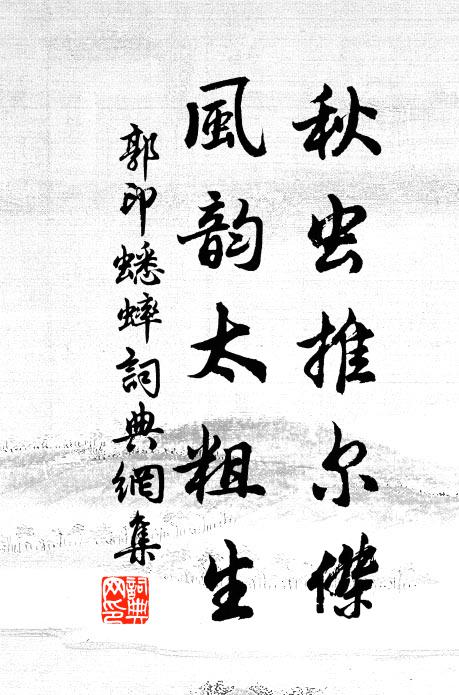 秋虫推尔傑
風韵太粗生
郭印蟋蟀詞典網集
詞典网印